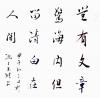 豈有文章
驚海内但
留清白在
人间